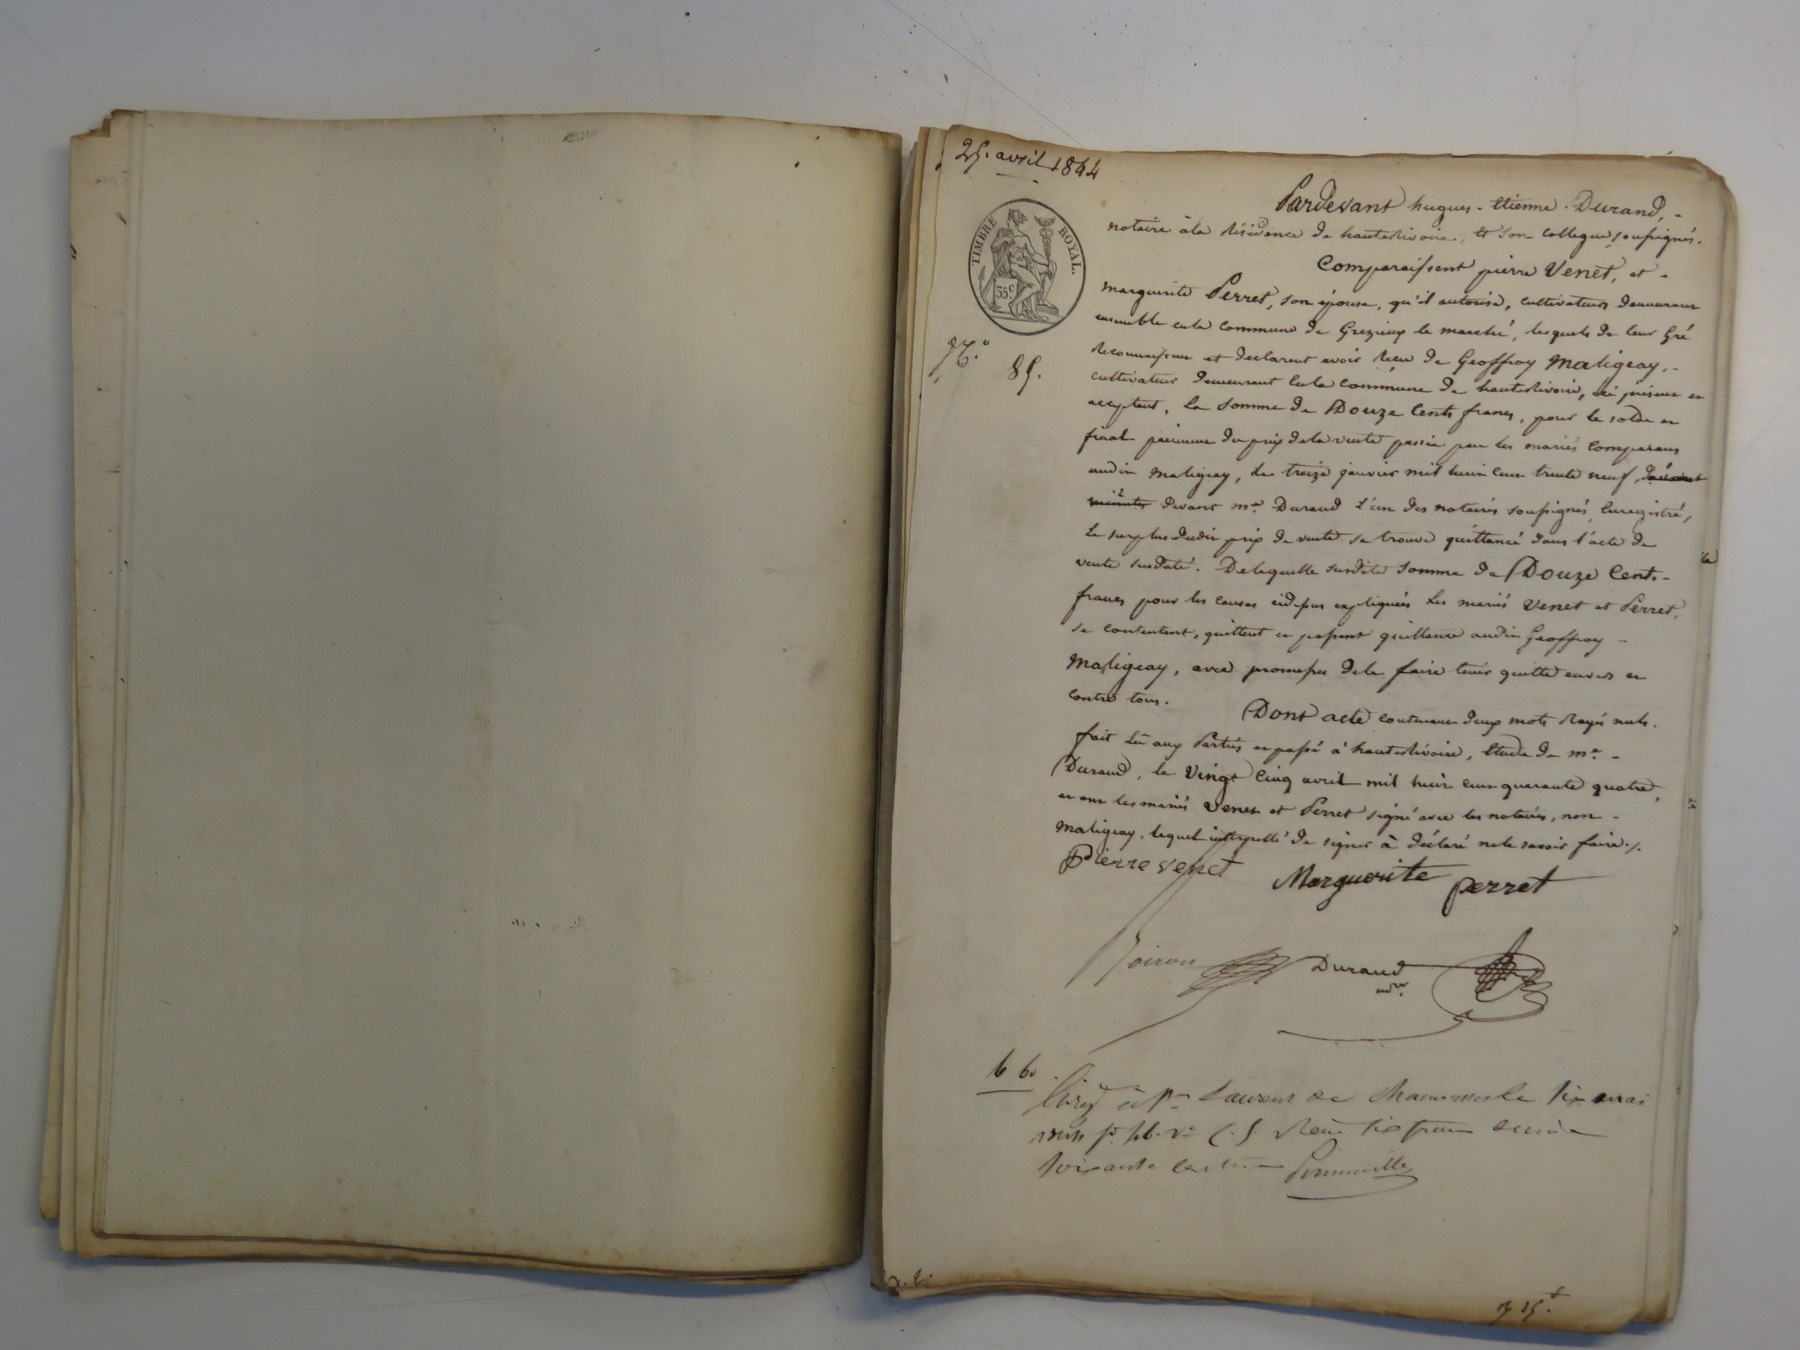 25. avril 1844
TIMBRE ROYAL.
35c
85.
Pardevant hugues-Etienne Durand,
notaire à la Résidence de hauterivoire, et son collegue, soussignés.
Comparaissent pierre Venet, et
marguerite Perret, son épouse, qu'il autorise, cultivateurs demeurant
ensemble en la commune de Grezieux le marché, lesquels de leur Gré
Reconnaissent et declarent avoir Recu de Geoffroy Maligeay,
cultivateur demeurant En la commune de hauterivoire, ici présent et
acceptant, la somme de Douze Cents francs, pour le solde et
final paiement du prix de la vente passée par les mariés comparans
audit Maligeay, le treize janvier mil huit cent trente neuf,
minute devant me Durand l'un des notaires soussignés, Enregistré,
Le surplus dudit prix de vente se trouve quittancé dans l'acte de
vente susdaté. De laquelle susdite somme de Douze Cents
francs pour les causes cidessus expliquées Les mariés Venet et Perret,
se contentent, quittent et passent quittance audit Geoffroy
Maligeay, avec promesse de le faire tenir quitte envers et
contre tous.
Dont acte contenant deux mots Rayés nuls.
fait Lu aux Parties et passé à hauterivoire, Etude de me
Durand, le Vingt Cinq avril mil huit cent quarante quatre,
et ont les mariés Venet et Perret signé avec les notaires, non
Maligeay, lequel interpellé de signer à déclaré ne le savoir faire./.
Pierre venet
Marguerite perret
Durand
nre
6 60
six mai
Recu six francs
soixante centimes